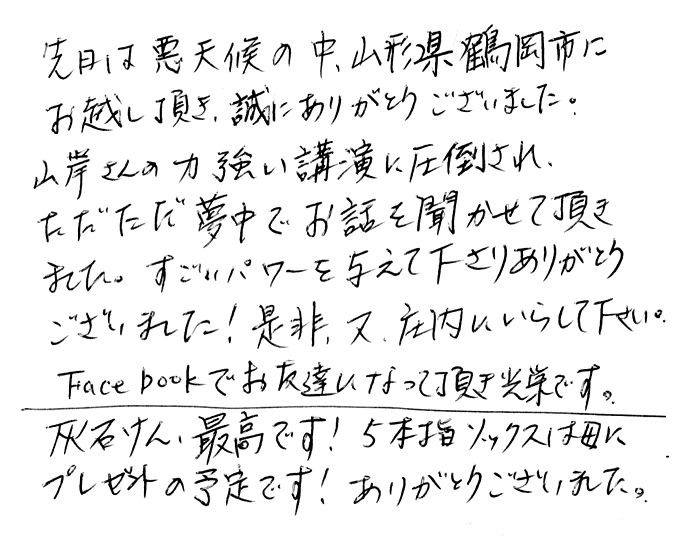 先日は悪天候の中、山形県鶴岡市に
お越し頂き、誠にありがとうございました。
山岸さんの力強い講演に圧倒され、
ただただ夢中でお話を聞かせて頂き
ました。すごいパワーを与えて下さりありがとう
ございました！是非、又、庄内にいらして下さい。
Facebookでお友達になって頂き光栄です。
灰石けん、最高です！5本指ソックスは母に
プレゼントの予定です！ありがとうございました。